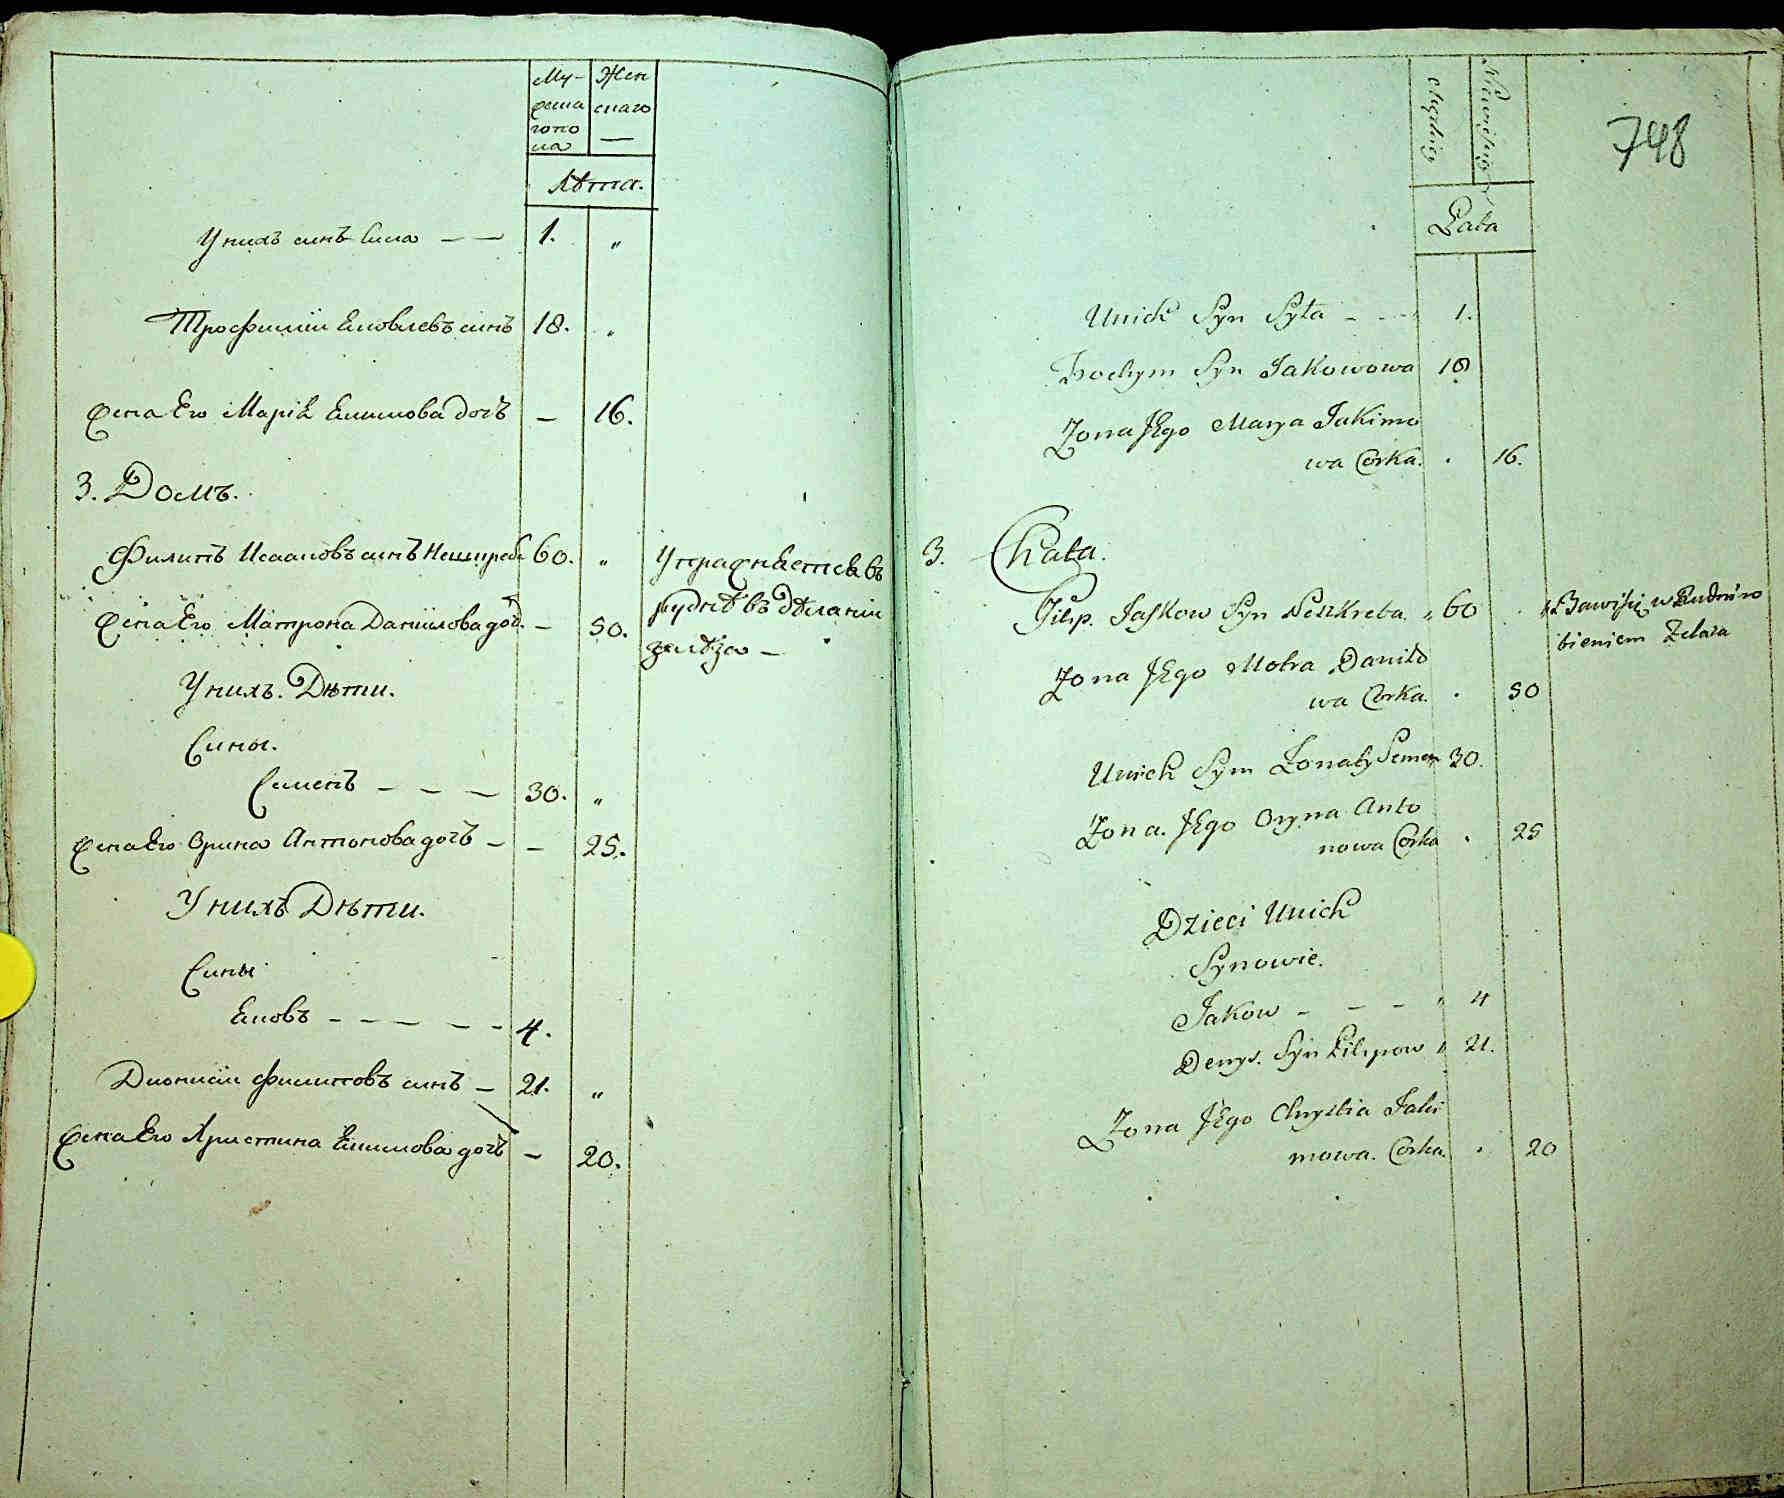 Му-
жеска
го по
ла
Жен
скаго
Лѣта.
У нихъ синъ Сила — — 1. "
Трофимій Яковлевъ синъ 18. "
Жена Его Марія Якимова дочь — 16.
3. Домъ.
Филипъ Исааковъ синъ Нешкреба 60. "
Упражняется въ
рудне въ дѣланіи
желѣза —
Жена Его Матрона Даниилова доч. — 50.
У нихъ. Дѣти.
Сины.
Сименъ — — — 30. "
Жена Его Орина Антонова дочь — — 25.
У нихъ Дѣти.
Сины
Яковъ — — — — — 4.
Дионисіи Филиповъ синъ — 21. "
Жена Его Христина Якимова дочь — 20.
748
Lata
Unich Syn Syła - - - 1.
Trochym Syn Jakowowa 18
Zona JEgo Marya Jakimo
wa Corka. . 16.
3. Chata.
Filip. Jaskow Syn Neszkreba. " 60
Bawisię w Rudni ro
bieniem Zelaza
Zona JEgo Motra Daniło
wa Corka. . 50
Unich Syn Żonaty Semen 30.
Zona. JEgo Oryna Anto
nowa Corka . 25
Dzieci Unich
Synowie.
Jakow - - - " 4
Denys. Syn Filipow " 21.
Zona JEgo Chrystia Jaki
mowa. Corka. . 20